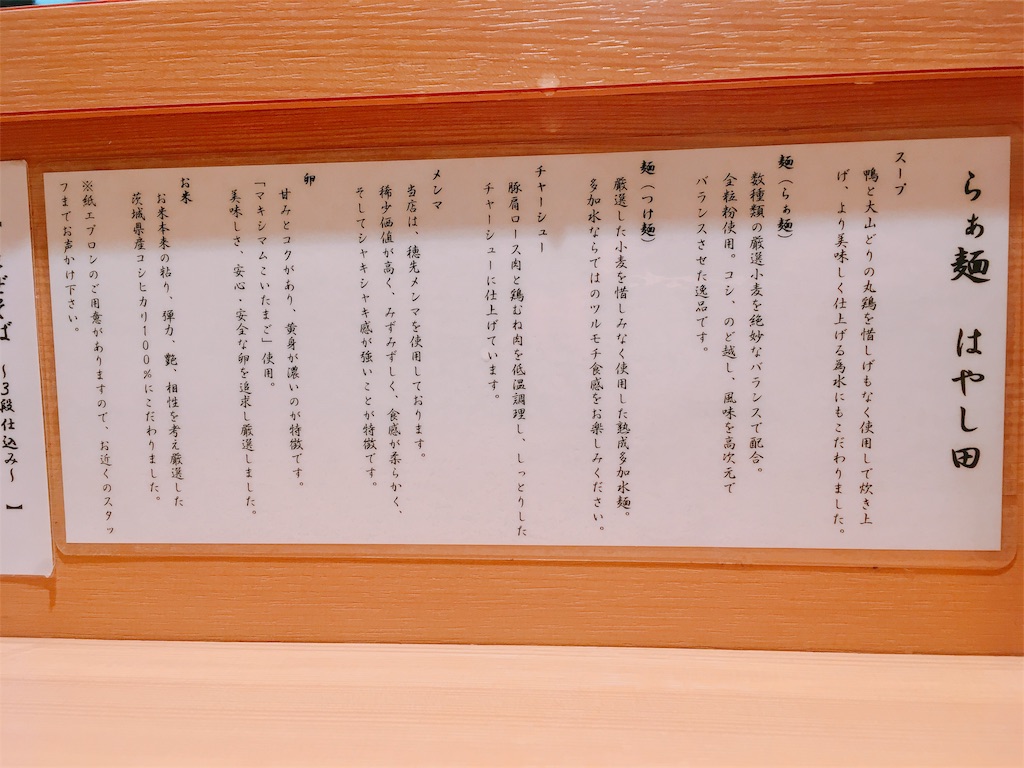 らぁ麺 はやし田
スープ
鴨と大山どりの丸鶏を惜しげもなく使用して炊き上
げ、より美味しく仕上げる為水にもこだわりました。
麺（らぁ麺）
数種類の厳選小麦を絶妙なバランスで配合。
全粒粉使用。コシ、のど越し、風味を高次元で
バランスさせた逸品です。
麺（つけ麺）
厳選した小麦を惜しみなく使用した熟成多加水麺。
多加水ならではのツルモチ食感をお楽しみください。
チャーシュー
豚肩ロース肉と鶏むね肉を低温調理し、しっとりした
チャーシューに仕上げています。
メンマ
当店は、穂先メンマを使用しております。
稀少価値が高く、みずみずしく、食感が柔らかく、
そしてシャキシャキ感が強いことが特徴です。
卵
甘みとコクがあり、黄身が濃いのが特徴です。
「マキシマムこいたまご」使用。
美味しさ、安心・安全な卵を追求し厳選しました。
お米
お米本来の粘り、弾力、艶、相性を考え厳選した
茨城県産コシヒカリ100%にこだわりました。
※紙エプロンのご用意がありますので、お近くのスタッ
フまでお声かけ下さい。
そば ～3段仕込み～】